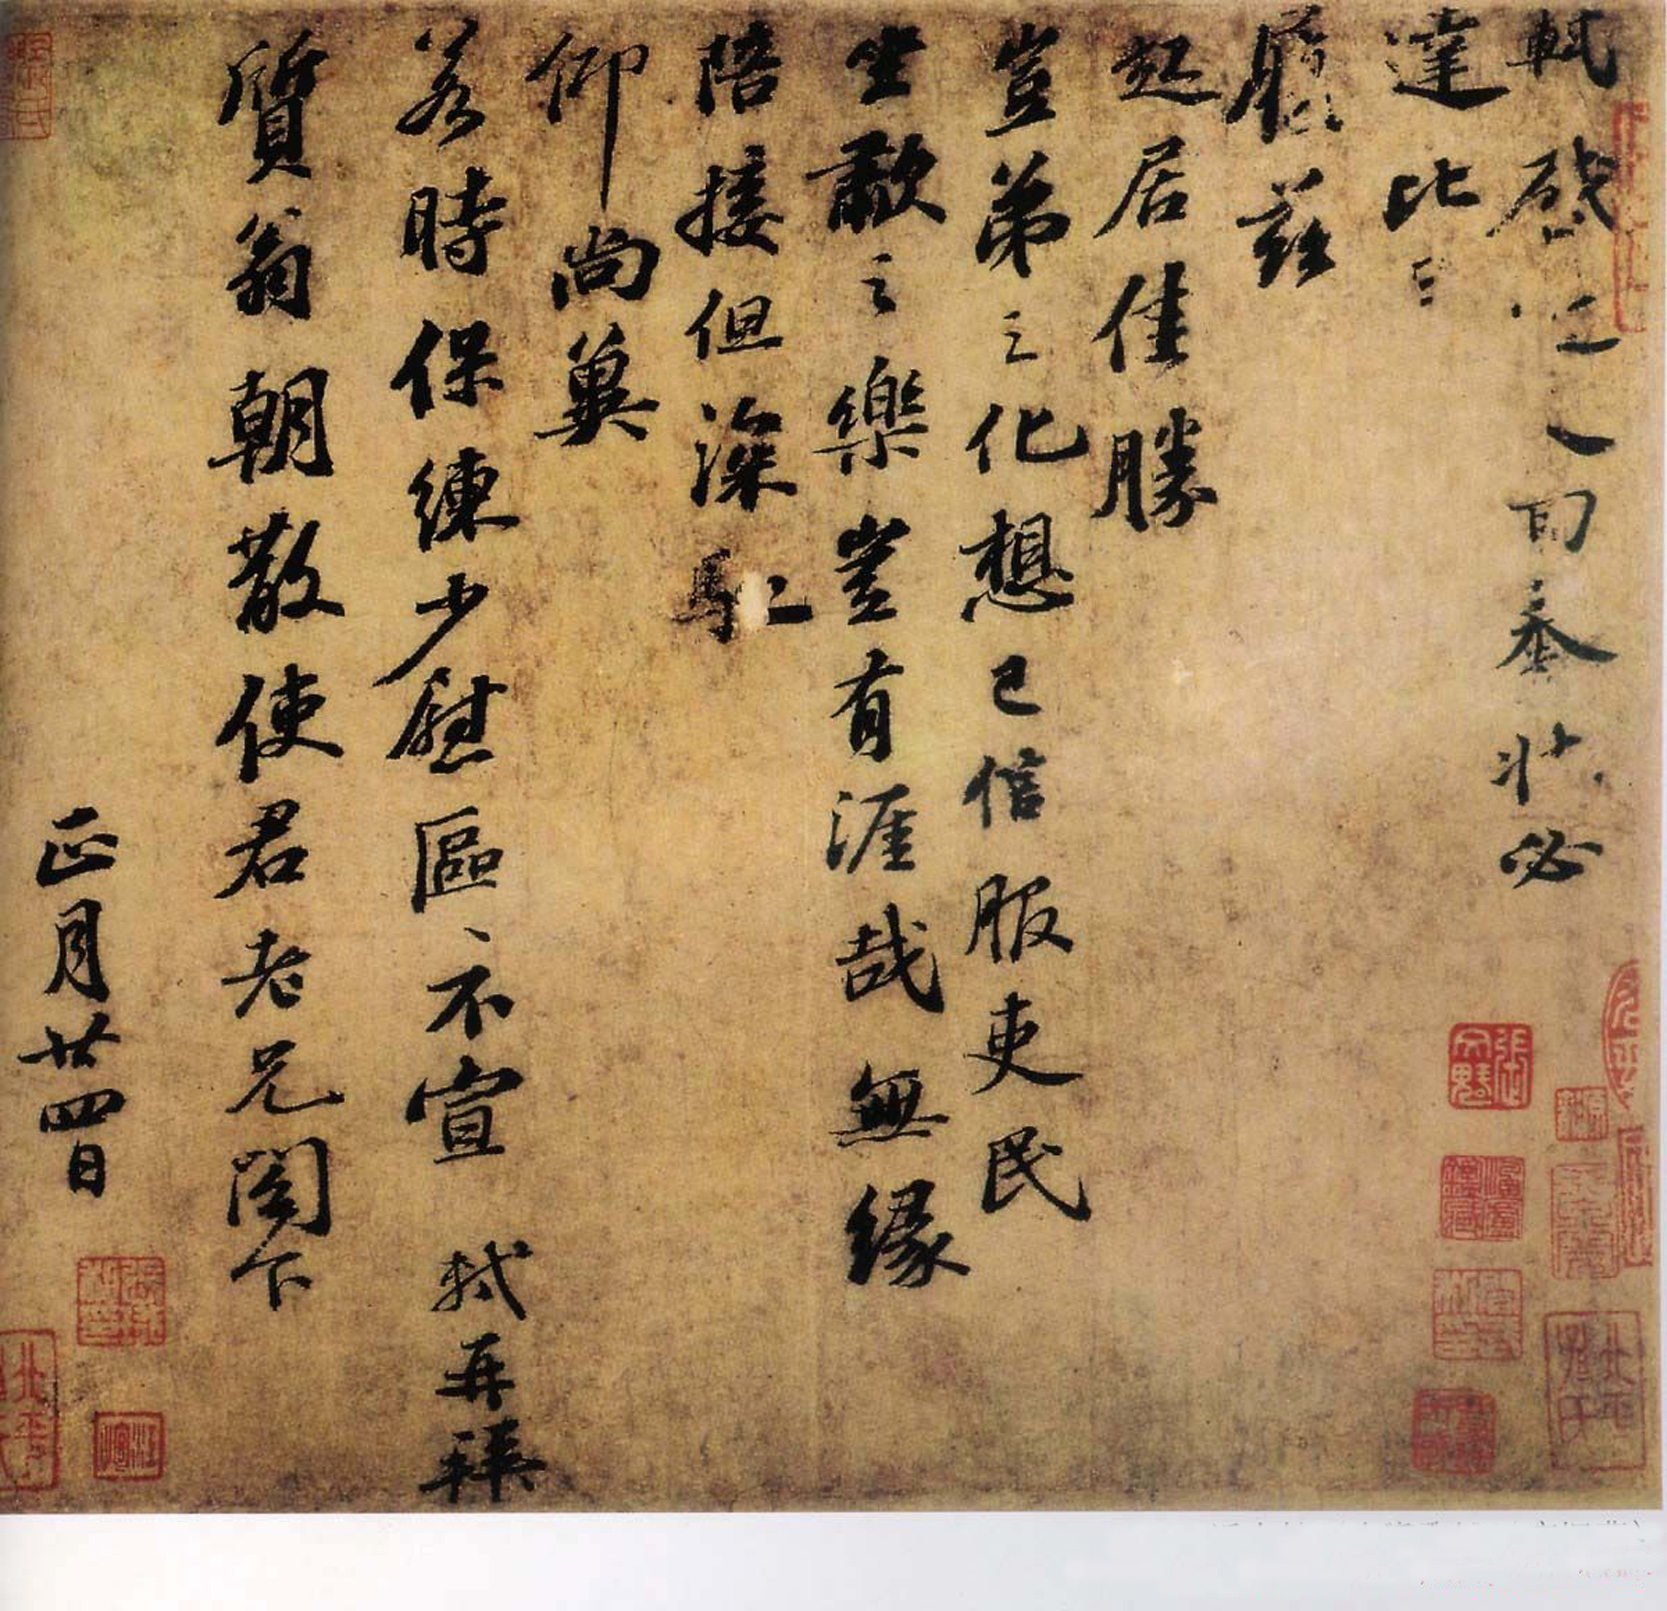 軾啓回奉狀必
達比
履茲
起居佳勝
豈弟之化想已信服吏民
坐歗之樂豈有涯哉無緣
陪接但深馳
仰尚冀
若時保練少慰區、不宣軾再拜
質翁朝散使君老兄閤下
正月廿四日